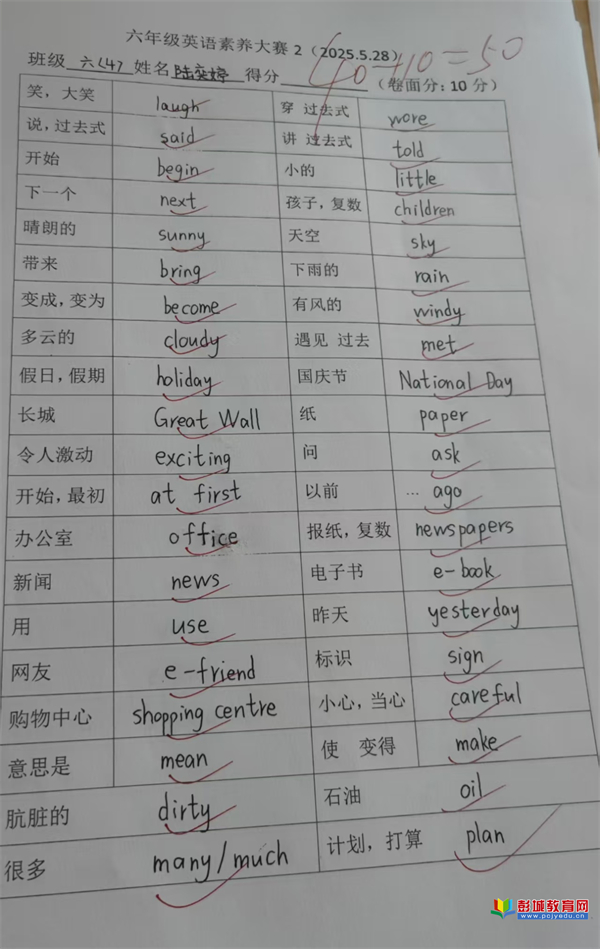 六年级英语素养大赛 2（2025.5.28）
40+10=50
班级 六(4) 姓名 陆奕婷 得分 （卷面分：10分）
笑，大笑 laugh 穿 过去式 wore
说，过去式 said 讲 过去式 told
开始 begin 小的 little
下一个 next 孩子，复数 children
晴朗的 sunny 天空 sky
带来 bring 下雨的 rain
变成，变为 become 有风的 windy
多云的 cloudy 遇见 过去 met
假日，假期 holiday 国庆节 National Day
长城 Great Wall 纸 paper
令人激动 exciting 问 ask
开始，最初 at first 以前 … ago
办公室 office 报纸，复数 newspapers
新闻 news 电子书 e-book
用 use 昨天 yesterday
网友 e-friend 标识 sign
购物中心 shopping centre 小心，当心 careful
意思是 mean 使 变得 make
肮脏的 dirty 石油 oil
很多 many/much 计划，打算 plan
彭城教育网
www.pcjyedu.cn